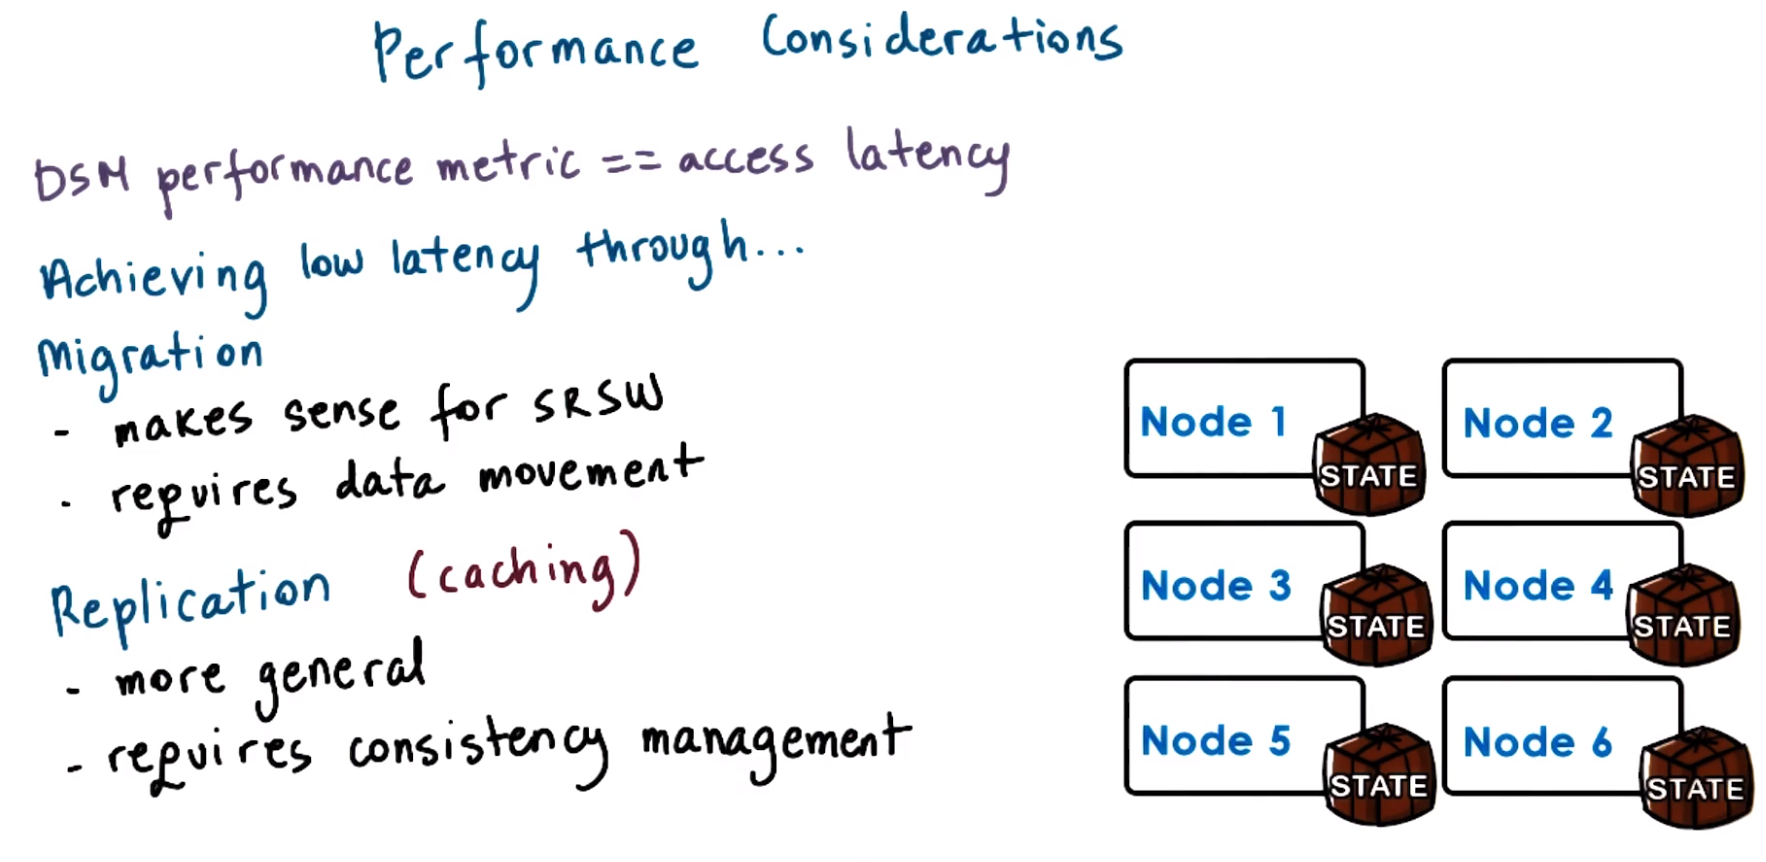 Performance Considerations
DSM performance metric == access latency
Achieving low latency through...
Migration
- makes sense for SRSW
- requires data movement
Replication (caching)
- more general
- requires consistency management
Node 1
STATE
Node 2
STATE
Node 3
STATE
Node 4
STATE
Node 5
STATE
Node 6
STATE